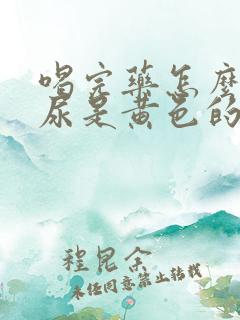 喝完藥怎麼
尿是黃色的
程昆余
未経同意禁止转載